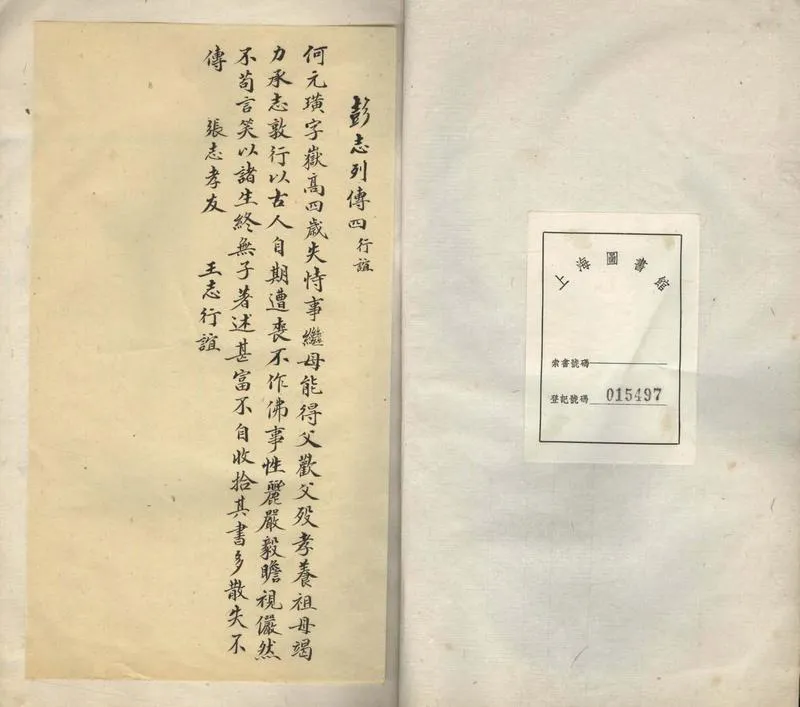 上海圖書館
索書號碼
登記號碼 015497
彭志列傳四 行誼
何元璜字嶽高四歲失恃事繼母能得父歡父歿孝養祖母竭
力承志敦行以古人自期遭喪不作佛事性麗嚴毅瞻視儼然
不苟言笑以諸生終無子著述甚富不自收拾其書多散失不
傳 張志孝友 王志行誼